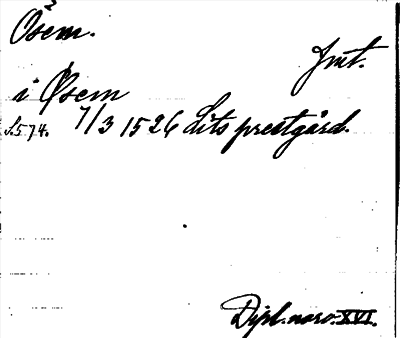 Ösem.
Jmt.
i Øsem
s. 574. 7/3 1526 Lits prestgård.
Dipl. norv. XVI.